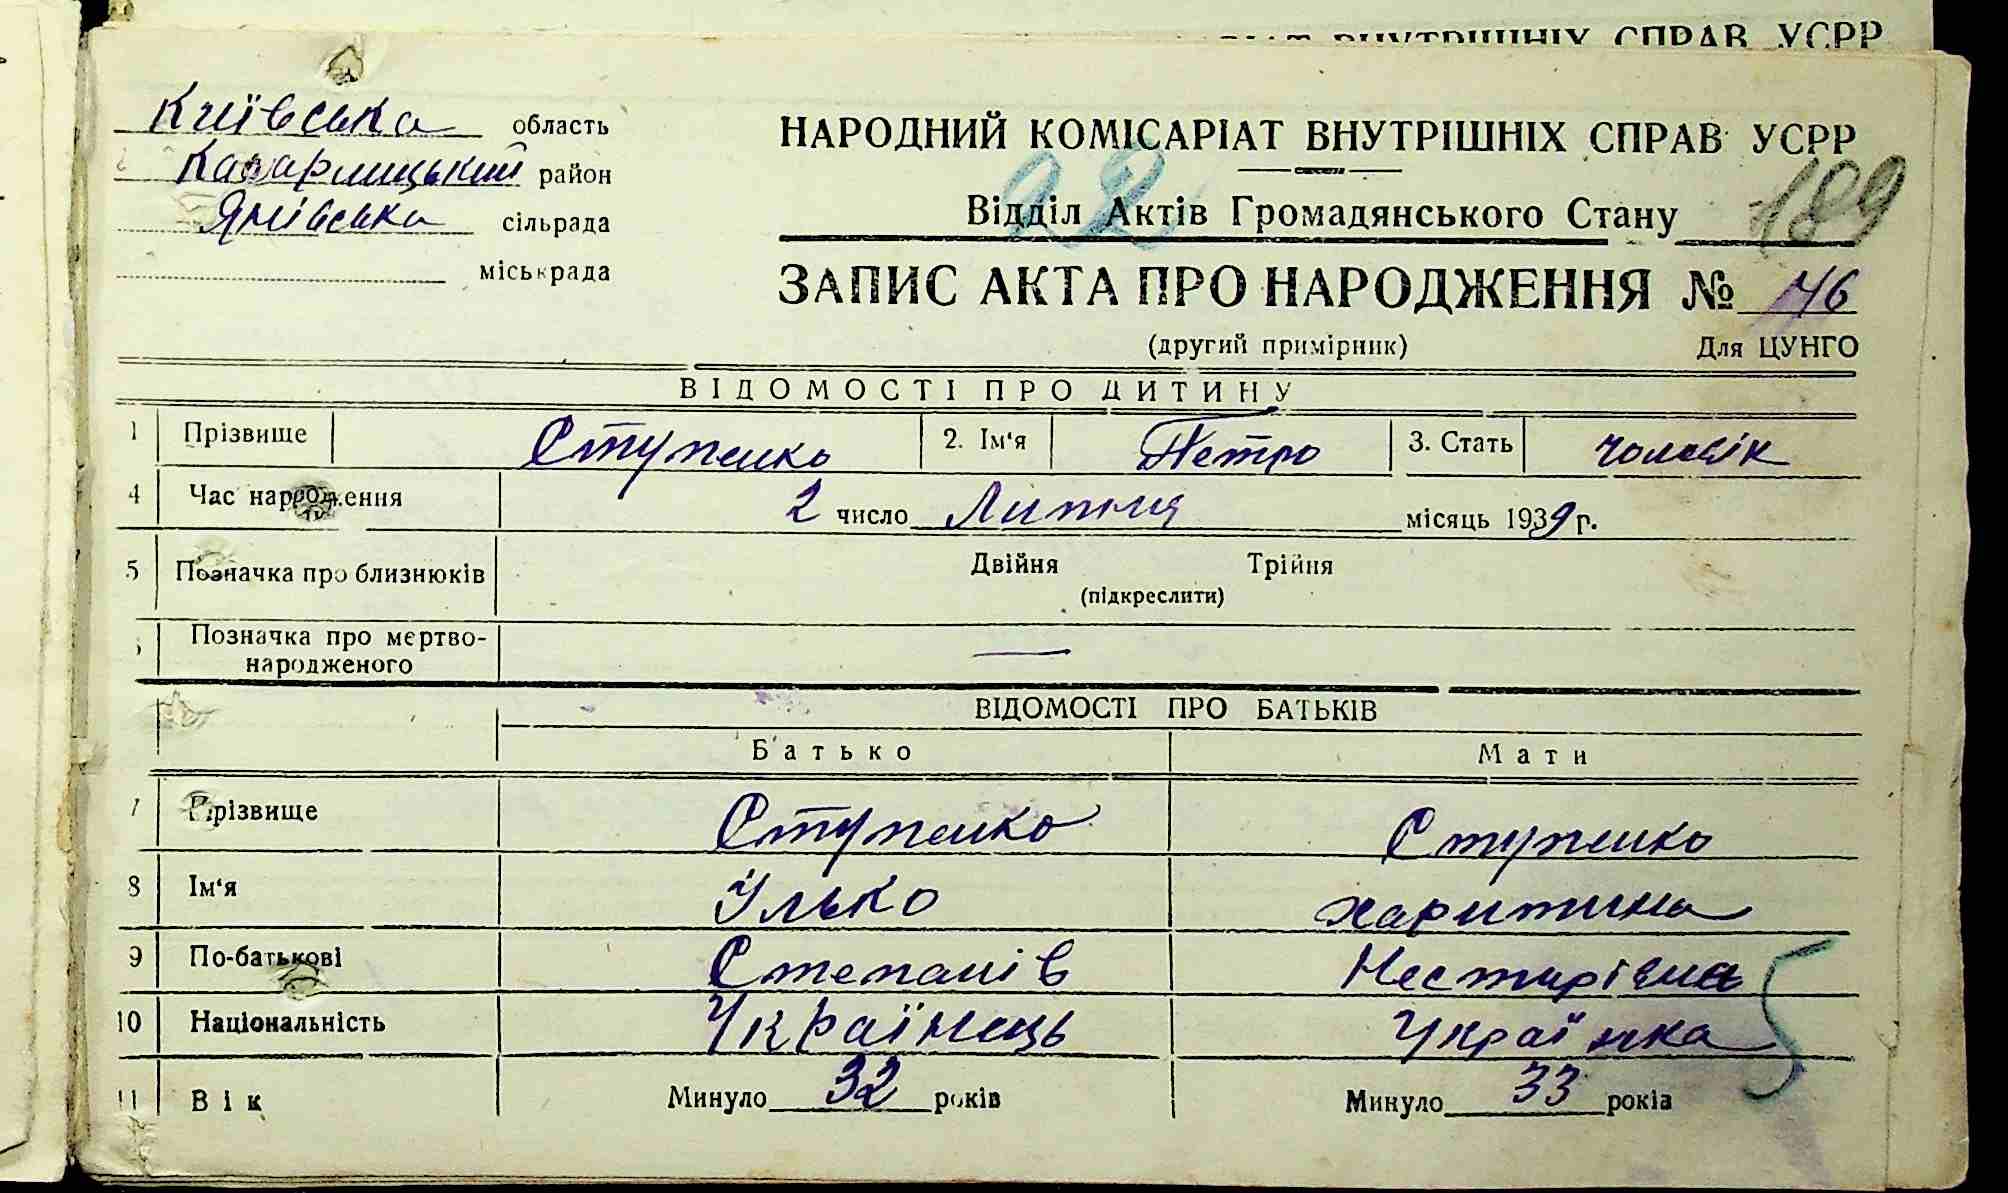 ВНУТРІШНІХ СПРАВ УСРР
Київська область
Кагарлицький район
ЯНівська сільрада
міськрада
НАРОДНИЙ КОМІСАРІАТ ВНУТРІШНІХ СПРАВ УСРР
22
Відділ Актів Громадянського Стану 189
ЗАПИС АКТА ПРО НАРОДЖЕННЯ № 76
(другий примірник) Для ЦУНГО
ВІДОМОСТІ ПРО ДИТИНУ
1 Прізвище Ступенко 2. Ім'я Петро 3. Стать чоловік
4 Час народження 2 число Липня місяць 1939 р.
5 Позначка про близнюків Двійня Трійня
(підкреслити)
Позначка про мертво-
народженого —
ВІДОМОСТІ ПРО БАТЬКІВ
Батько Мати
7 Прізвище Ступенко Ступенко
8 Ім'я Улько харитина
9 По-батькові Степанів Нестирівна
10 Національність Українець Українка
11 Вік Минуло 32 років Минуло 33 років